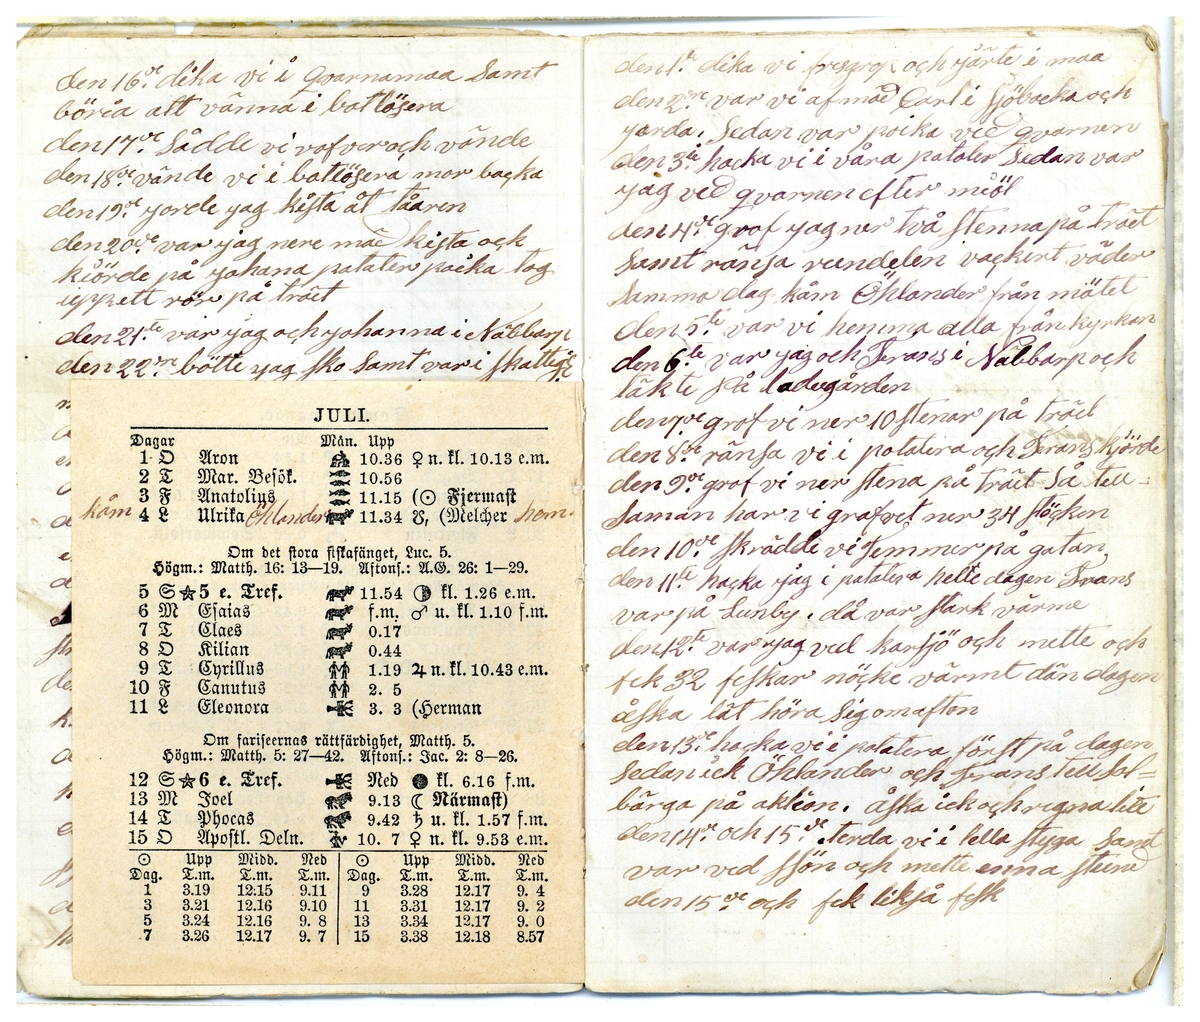 den 16de dika vi i qvarnamaa Samt
böria att vänna i botlösera
den 17de Sådde vi vafver och vände
den 18de vände vi i botlösera mor backa
den 19de yorde yag kista åt tåaren
den 20de var yag nere mäd kista och
kiörde på yohana potater poika tog
upp ett rör på träet
den 21te var yag och yohanna i Näbbarp
den 22re bötte yag sko Samt var i skattegå
JULI.
Dagar Mån. Upp
1 O Aron 10.36 ♀ n. kl. 10.13 e.m.
2 T Mar. Besök. 10.56
3 F Anatolius 11.15 (☉ Fjermast
kåm 4 L Ulrika Öhlander 11.34 ☋, (Melcher hem
Om det stora fiskafänget, Luc. 5.
Högm.: Matth. 16: 13—19. Aftons.: A.G. 26: 1—29.
5 S ★ 5 e. Tref. 11.54 ◑ kl. 1.26 e.m.
6 M Esaias f.m. ♂ u. kl. 1.10 f.m.
7 T Claes 0.17
8 O Kilian 0.44
9 T Cyrillus 1.19 ♃ n. kl. 10.43 e.m.
10 F Canutus 2. 5
11 L Eleonora 3. 3 (Herman
Om fariseernas rättfärdighet, Matth. 5.
Högm.: Matth. 5: 27—42. Aftons.: Jac. 2: 8—26.
12 S ★ 6 e. Tref. Ned ● kl. 6.16 f.m.
13 M Joel 9.13 ☾ Närmast)
14 T Phocas 9.42 ♄ u. kl. 1.57 f.m.
15 O Apostl. Deln. 10. 7 ♀ n. kl. 9.53 e.m.
☉ Upp Midd. Ned ☉ Upp Midd. Ned
Dag. T.m. T.m. T.m. Dag. T.m. T.m. T.m.
1 3.19 12.15 9.11 9 3.28 12.17 9. 4
3 3.21 12.16 9.10 11 3.31 12.17 9. 2
5 3.24 12.16 9. 8 13 3.34 12.17 9. 0
7 3.26 12.17 9. 7 15 3.38 12.18 8.57
den 1te dika vi och yärte i maa
den 2re var vi af mäd Carl i Sjöbacka och
yorda. Sedan var poika ved qvarnen
den 3ie hacka vi i våra potater Sedan var
yag ved qvarnen efter miöl
den 4de grof yag ner två stenna på träet
Samt ränsa rundelen vackert väder
Samma dag kåm Öhlander från mötet
den 5te var vi hemma alla från kyrkan
den 6te var yag och Frans i Näbbarp och
täkte på ladugården
den 7de grof vi ner 10 stenar på träet
den 8de ränsa vi i potatera och Frans kjörde
den 9de grof vi ner stena på träet Så tell=
Saman har vi grafvet ner 34 stöcken
den 10de skrädde vi temmer på gatan,
den 11te hacka yag i potatera hette dagen Frans
var på Lunby. då var stark värme
den 12te var yag ved karsjö och mette och
fek 32 feskar nöcke värmt dän dagen
åska lät höra Sig om afton
den 13de hacka vi i potatera först på dagen
Sedan ick Öhlander och Frans tell Sol=
bärga på aktion. åska ick och regna lite
den 14de och 15de terda vi i lella styga Samt
var ved sjön och mette enna stenne
den 15de och fek likså fesk